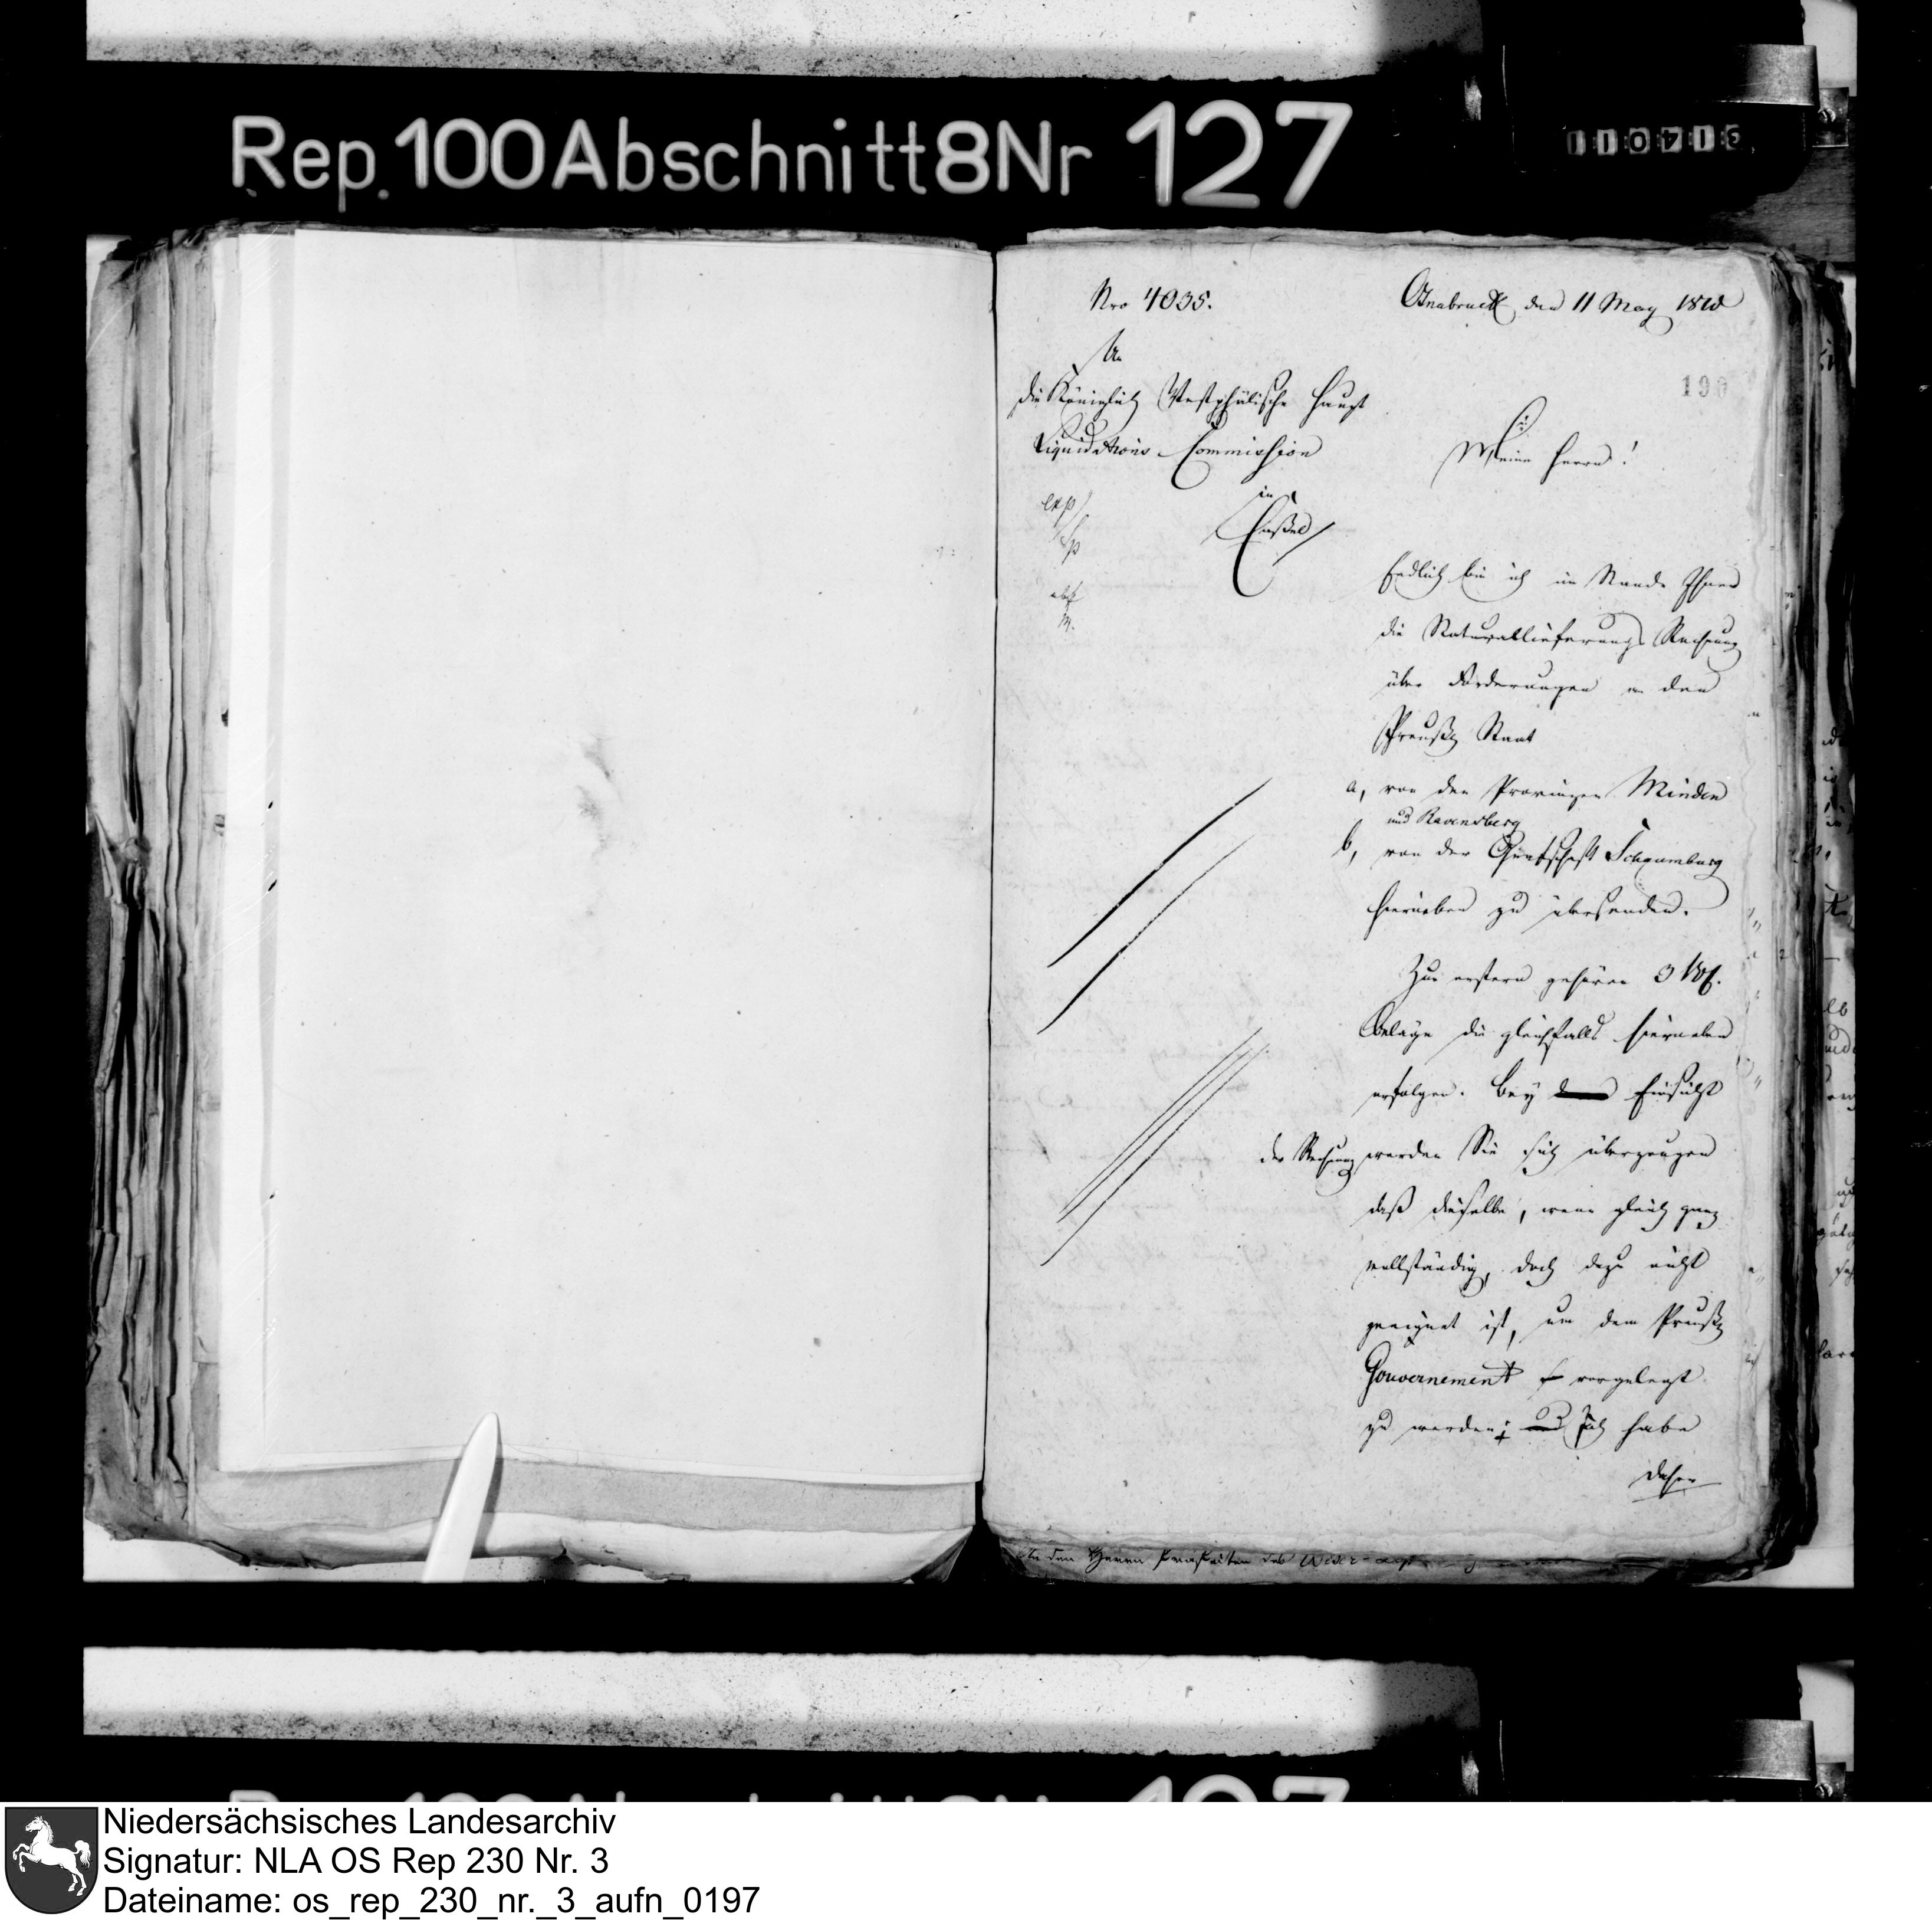 Rep. 100 Abschnitt 8 Nr 127
110415
Nro 4035.
Osnabruck den 11 May 1810
190
An
die Königlich Westphälische Haupt
Liquidations-Commission
in
Cassel
exp
Meine Herrn!
Endlich bin ich im Stande Ihnen
die Naturallieferungs Rechnung
über Forderungen an den
Preuß. Staat
a, von den Provinzen Minden
und Ravensberg
b, von der Grafschaft Schaumburg
hierneben zu übersenden.
Zur erstern gehören 3 Vol.
Beläge die gleichfalls hierneben
erfolgen. Bey Einsicht
der Rechnung werden Sie sich überzeugen
daß dieselbe, wenn gleich ganz
vollständig, doch dazu nicht
geeignet ist, um dem Preuß.
Gouvernement vorgelegt
zu werden; Ich habe
daher
den Herrn Praefecten des Weser-
Niedersächsisches Landesarchiv
Signatur: NLA OS Rep 230 Nr. 3
Dateiname: os_rep_230_nr._3_aufn_0197